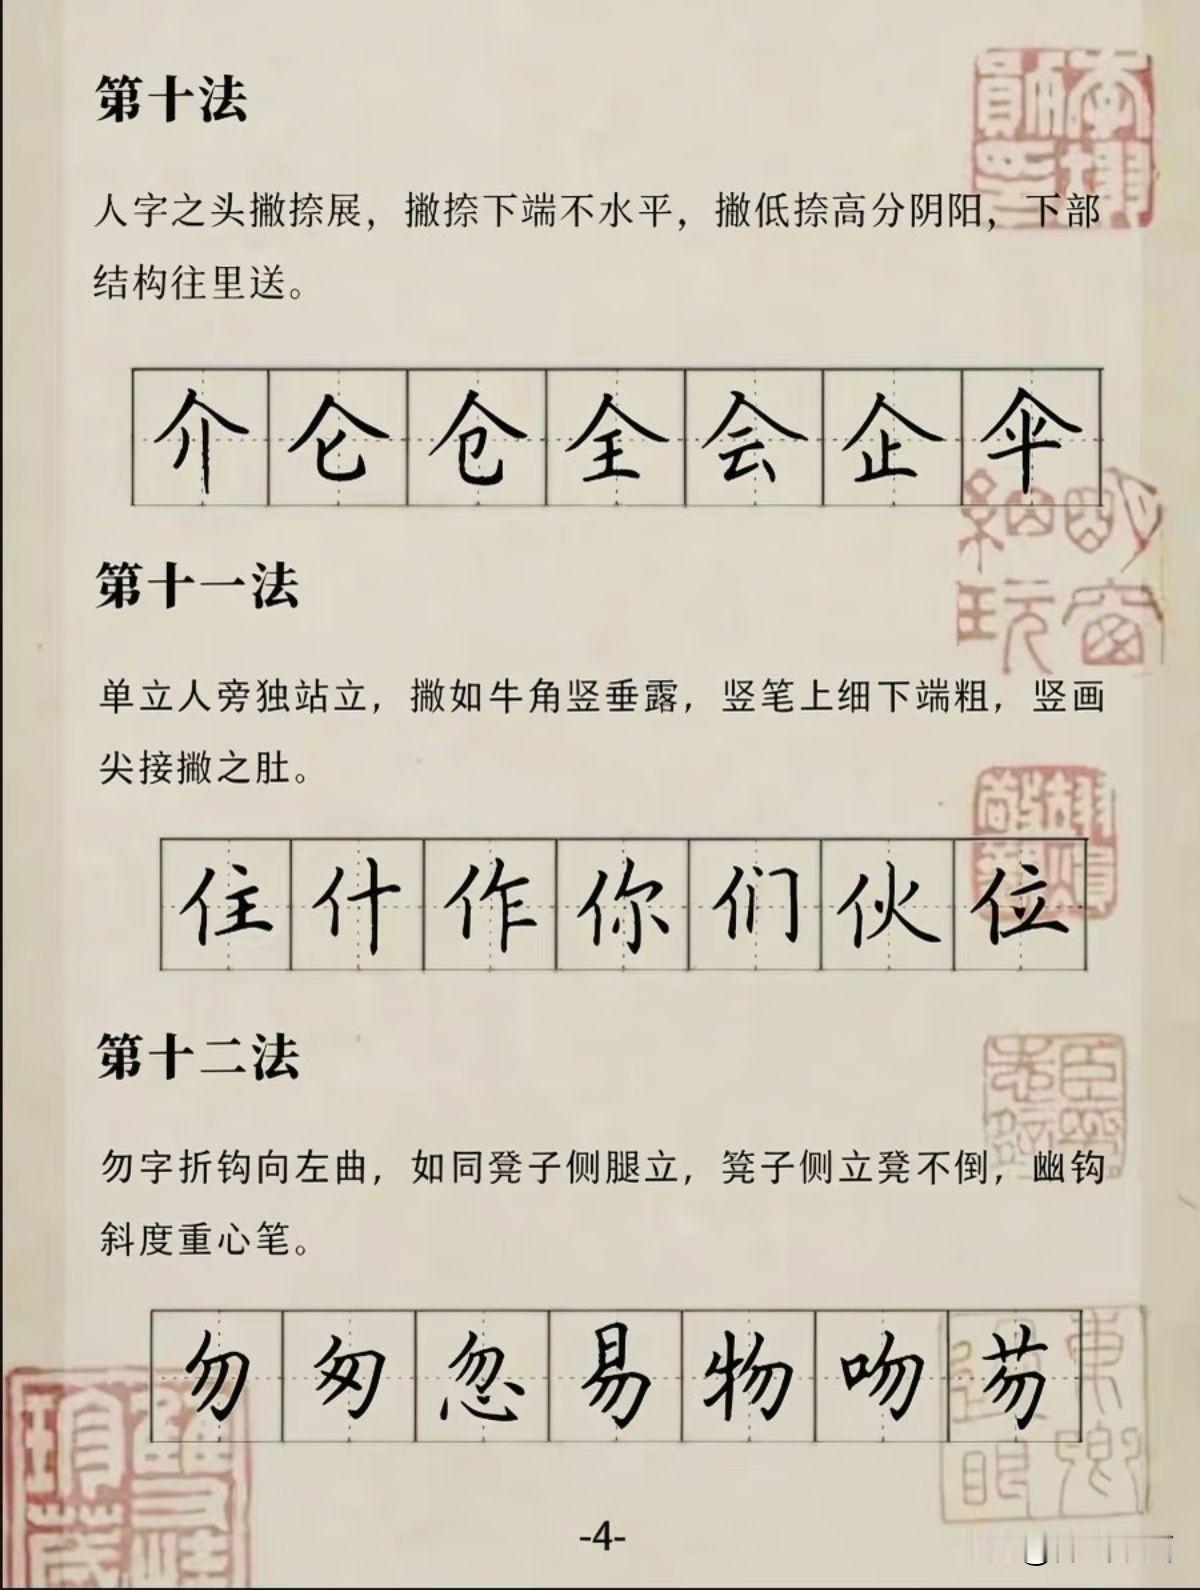 第十法
人字之头撇捺展，撇捺下端不水平，撇低捺高分阴阳，下部
结构往里送。
介仑仓全会企伞
第十一法
单立人旁独站立，撇如牛角竖垂露，竖笔上细下端粗，竖画
尖接撇之肚。
住什作你们伙位
第十二法
勿字折钩向左曲，如同凳子侧腿立，凳子侧立凳不倒，幽钩
斜度重心笔。
勿匆忽易物吻芴
-4-